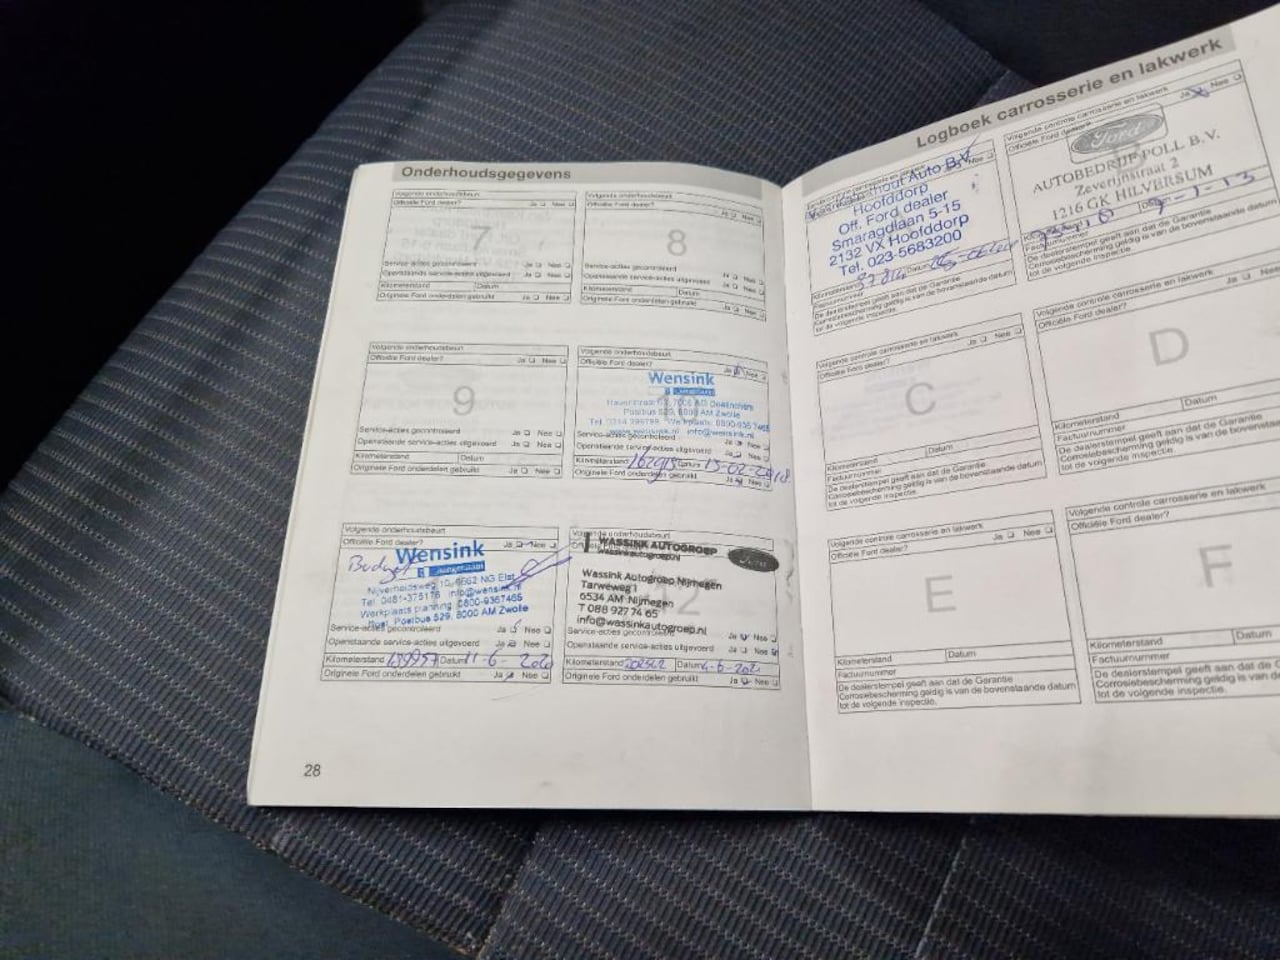 Onderhoudsgegevens
Volgende onderhoudsbeurt
Officiële Ford dealer? Ja Nee
7
Service-acties gecontroleerd Ja Nee
Openstaande service-acties uitgevoerd Ja Nee
Kilometerstand Datum
Originele Ford onderdelen gebruikt Ja Nee
Volgende onderhoudsbeurt
Officiële Ford dealer? Ja Nee
8
Service-acties gecontroleerd Ja Nee
Openstaande service-acties uitgevoerd Ja Nee
Kilometerstand Datum
Originele Ford onderdelen gebruikt Ja Nee
Volgende onderhoudsbeurt
Officiële Ford dealer? Ja Nee
9
Service-acties gecontroleerd Ja Nee
Openstaande service-acties uitgevoerd Ja Nee
Kilometerstand Datum
Originele Ford onderdelen gebruikt Ja Nee
Volgende onderhoudsbeurt
Officiële Ford dealer? Ja Nee
Wensink
7006 AG Doetinchem
Postbus 529, 8000 AM Zwolle
www.wensink.nl info@wensink.nl
Service-acties gecontroleerd Ja Nee
Openstaande service-acties uitgevoerd Ja Nee
Kilometerstand Datum 13-02-2018
Originele Ford onderdelen gebruikt Ja Nee
Volgende onderhoudsbeurt
Officiële Ford dealer? Ja Nee
Wensink
Nijverheidsweg 10, 6662 NG Elst
Tel. 0481-375176 info@wensink.nl
Werkplaats planning 0800-9367465
Postbus 529, 8000 AM Zwolle
Service-acties gecontroleerd Ja Nee
Openstaande service-acties uitgevoerd Ja Nee
Kilometerstand 189957 Datum 11-6-2020
Originele Ford onderdelen gebruikt Ja Nee
Volgende onderhoudsbeurt
WASSINK AUTOGROEP
wassinkautogroep.nl
Ford
Wassink Autogroep Nijmegen
Tarweweg 1
6534 AM Nijmegen
T 088 927 74 65
info@wassinkautogroep.nl
12
Service-acties gecontroleerd Ja Nee
Openstaande service-acties uitgevoerd Ja Nee
Kilometerstand 202562 Datum 4-6-2021
Originele Ford onderdelen gebruikt Ja Nee
28
Logboek carrosserie en lakwerk
Auto B.V.
Hoofddorp
Off. Ford dealer
Smaragdlaan 5-15
2132 VX Hoofddorp
Tel. 023-5683200
Kilometerstand Datum
Factuurnummer
De dealerstempel geeft aan dat de Garantie
Corrosiebescherming geldig is van de bovenstaande datum
tot de volgende inspectie.
Volgende controle carrosserie en lakwerk
Officiële Ford dealer? Ja Nee
Ford
AUTOBEDRIJF POLL B.V.
Zeverijnstraat 2
1216 GK HILVERSUM
Factuurnummer
De dealerstempel geeft aan dat de Garantie
Corrosiebescherming geldig is van de bovenstaande datum
tot de volgende inspectie.
Volgende controle carrosserie en lakwerk
Officiële Ford dealer? Ja Nee
C
Kilometerstand Datum
Factuurnummer
De dealerstempel geeft aan dat de Garantie
Corrosiebescherming geldig is van de bovenstaande datum
tot de volgende inspectie.
Volgende controle carrosserie en lakwerk
Officiële Ford dealer? Ja Nee
D
Kilometerstand Datum
Factuurnummer
De dealerstempel geeft aan dat de Garantie
Corrosiebescherming geldig is van de bovenstaande
tot de volgende inspectie.
Volgende controle carrosserie en lakwerk
Officiële Ford dealer? Ja Nee
E
Kilometerstand Datum
Factuurnummer
De dealerstempel geeft aan dat de Garantie
Corrosiebescherming geldig is van de bovenstaande datum
tot de volgende inspectie.
Volgende controle carrosserie en lakwerk
Officiële Ford dealer?
F
Kilometerstand Datum
Factuurnummer
De dealerstempel geeft aan dat de
Corrosiebescherming geldig is van de bovenstaande
tot de volgende inspectie.